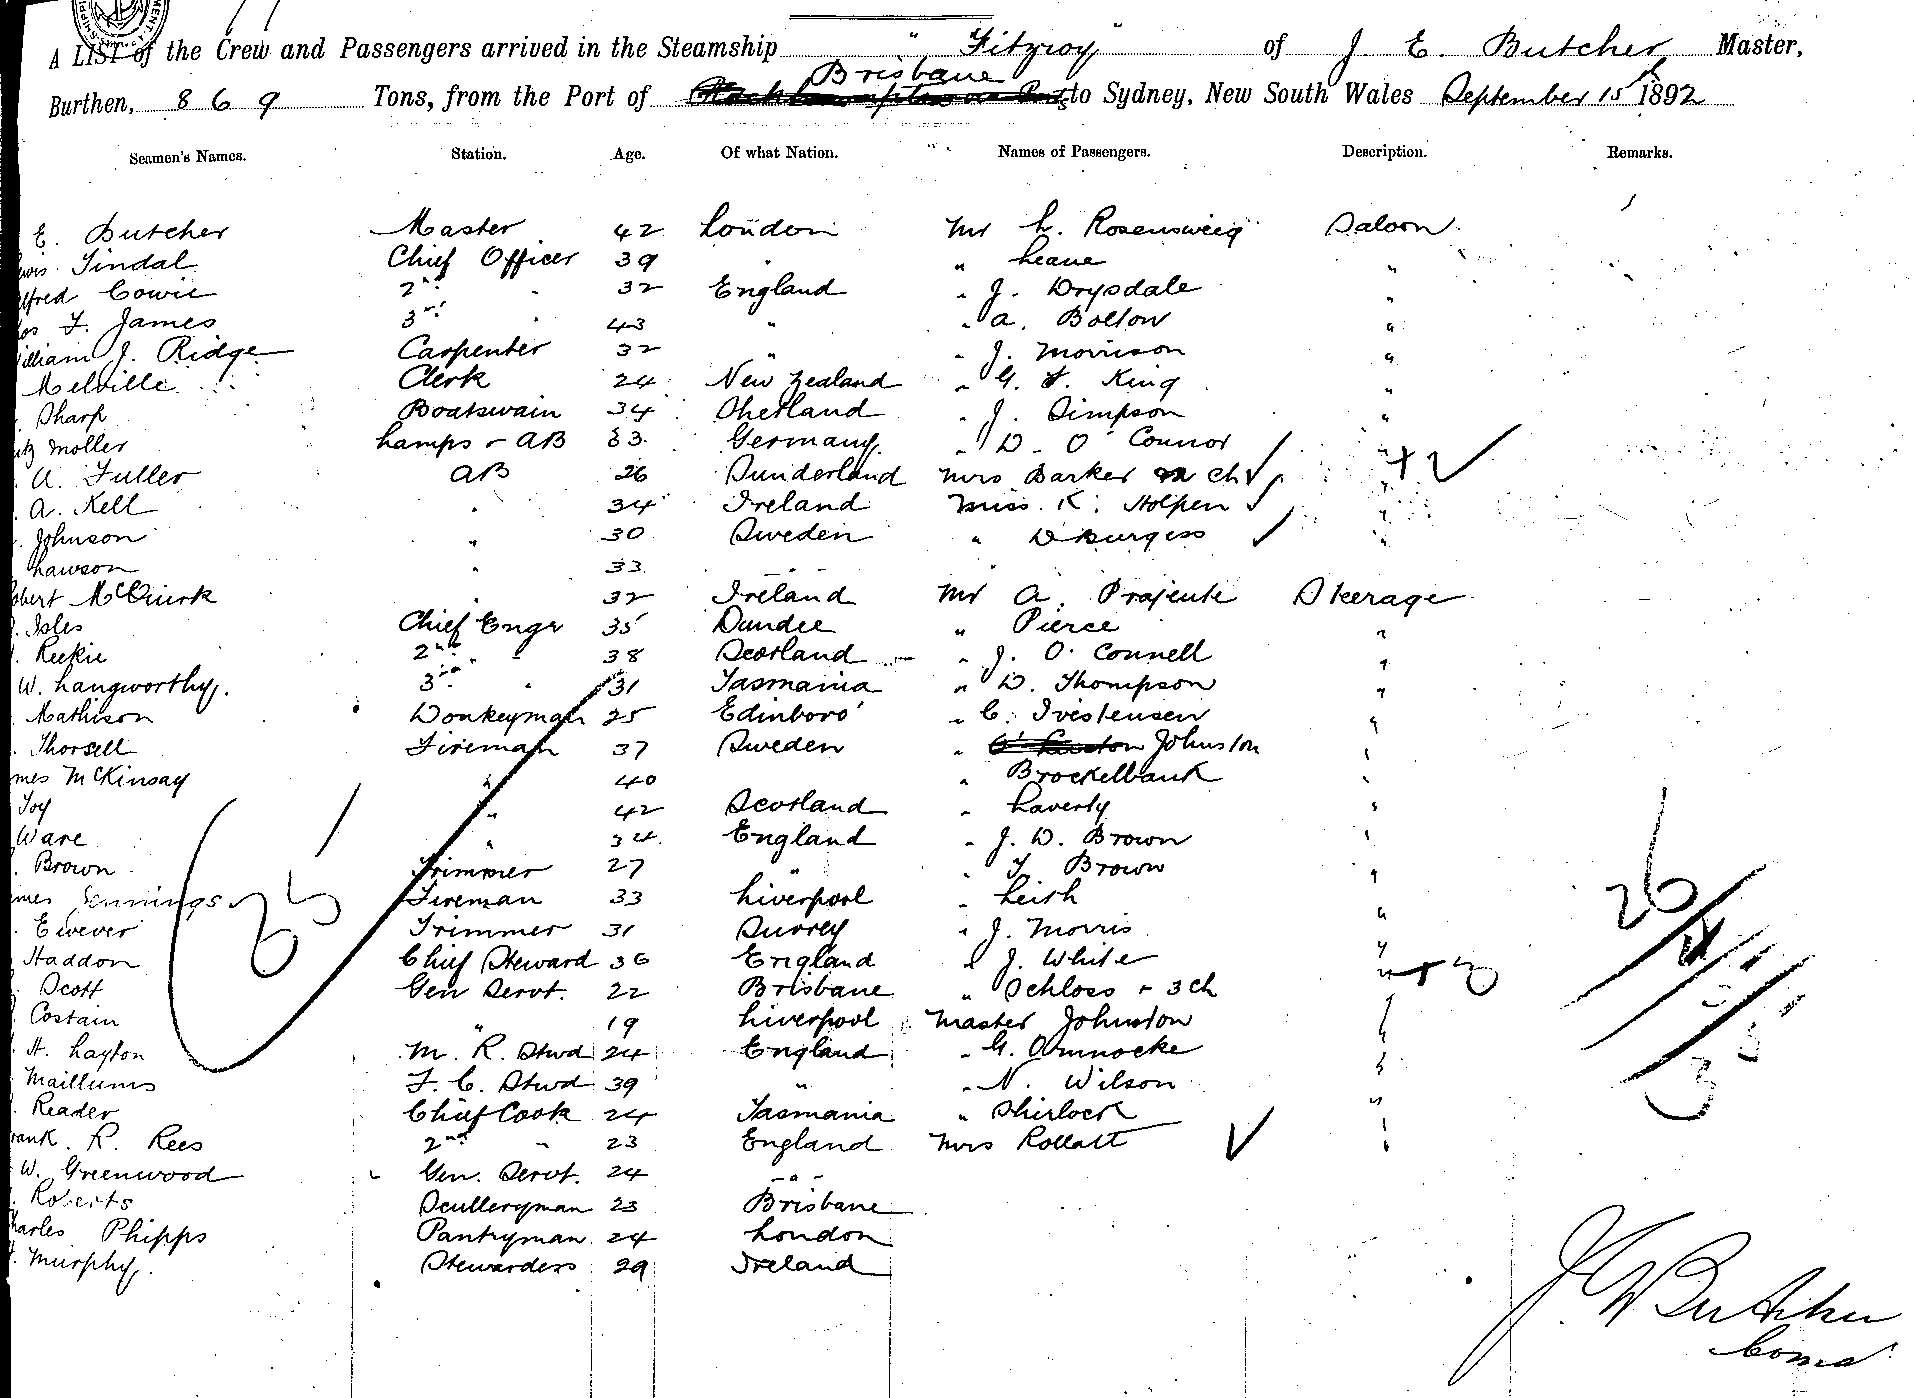 A LIST of the Crew and Passengers arrived in the Steamship "Fitzroy" of J. E. Butcher Master,
Burthen, 869 Tons, from the Port of Brisbane to Sydney, New South Wales September 15th 1892
Seamen's Names. Station. Age. Of what Nation. Names of Passengers. Description. Remarks.
E. Butcher Master 42 London Mr L. Rosensweig Saloon
Tindal Chief Officer 39 " " Leane "
Cowie 2nd " 32 England " J. Drysdale "
F. James 3rd " 43 " " A. Bolton "
William J. Ridge Carpenter 32 " " J. Morrison "
Melville Clerk 24 New Zealand " G. F. King "
Sharp Boatswain 34 Shetland " J. Simpson "
Moller Lamps & AB 33 Germany " D. O'Connor "
A. Fuller AB 26 Sunderland Mrs Barker ch " + 2
A. Kell " 34 Ireland Miss K. Holpen "
Johnson " 30 Sweden " D Burgess "
Lawson " 33 "
Robert McQuirk " 32 Ireland Mr A. Steerage
Isles Chief Engr 35 Dundee " Pierce "
Reekie 2nd " 38 Scotland " J. O'Connell "
W. Langworthy. 3rd " 31 Tasmania " D. Thompson "
Mathison Donkeyman 25 Edinboro' " C. "
Thorsell Fireman 37 Sweden " Johnston "
James McKinsay " 40 " Brockelbank "
Toy " 42 Scotland " Laverty "
Ware " 34 England " J. D. Brown "
Brown Trimmer 27 " " T Brown "
James Jennings Fireman 33 Liverpool " Leith 26
Trimmer 31 Surrey " J. Morris "
Haddon Chief Steward 36 England " J. White "
Scott Gen Servt. 22 Brisbane " Schloss & 3 ch " + 3
Costain " 19 Liverpool Master Johnston "
H. Layton M. R. Stwd 24 England " G. "
Maillums F. C. Stwd 39 " " N. Wilson "
Reader Chief Cook 24 Tasmania " Shirlock "
Frank R. Rees 2nd " 23 England Mrs Rollatt "
W. Greenwood Gen. Servt. 24 "
Roberts Sculleryman 23 Brisbane
Charles Phipps Pantryman 24 London
Murphy. Stewardess 29 Ireland
Butcher